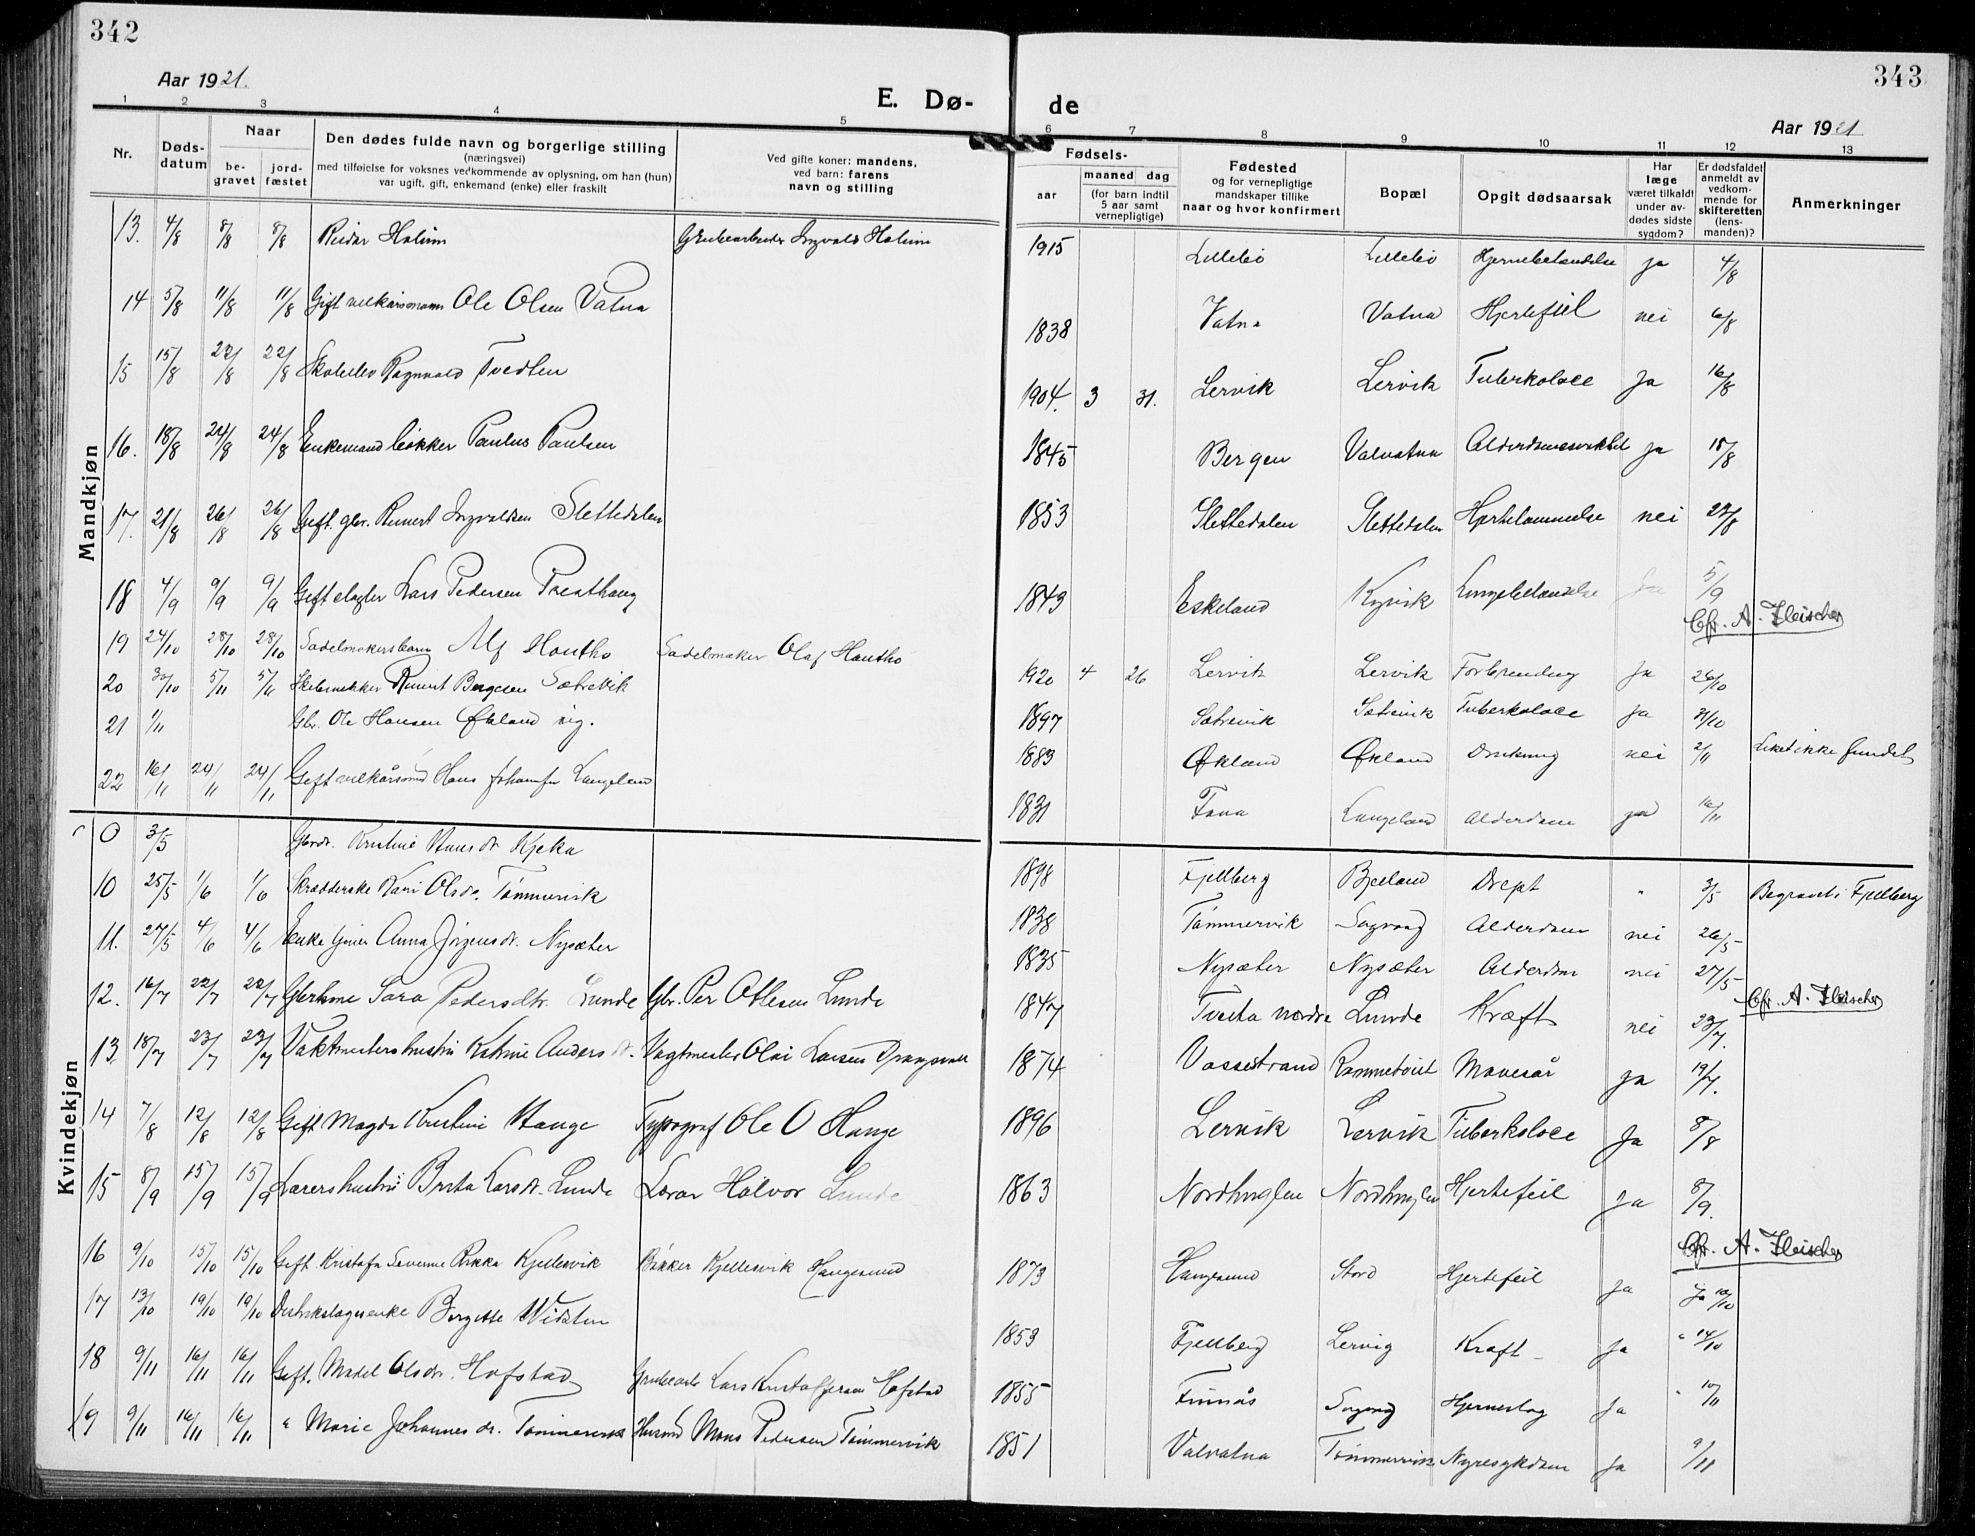 342
343
Aar 1921.
E. Dø-
de
Aar 1921
1 2 3 4 5 6 7 8 9 10 11 12 13
Nr.
Døds-datum
Naar
be-gravet
jord-fæstet
Den dødes fulde navn og borgerlige stilling
(næringsvei)
med tilføielse for voksnes vedkommende av oplysning, om han (hun)
var ugift, gift, enkemand (enke) eller fraskilt
Ved gifte koner: mandens,
ved barn: farens
navn og stilling
Fødsels-
aar
maaned dag
(for barn indtil
5 aar samt
vernepligtige)
Fødested
og for vernepligtige
mandskaper tillike
naar og hvor konfirmert
Bopæl
Opgit dødsaarsak
Har
læge
været tilkaldt
under av-
dødes sidste
sygdom?
Er dødsfaldet
anmeldt av
vedkom-
mende for
skifteretten
(lens-
manden)?
Anmerkninger
Mandkjøn
13. 4/8 8/8 8/8 Reidar Holum Grubearbeider Ingvald Holum 1915 Lillebø Lillebø Hjernebetændelse ja 4/8
14 5/8 11/8 11/8 Gift vilkårsmann Ole Olsen Vatna 1838 Vatna Vatna Hjertefeil nei 6/8
15 15/8 22/8 22/8 Skoleelev Ragnvald Tvedten 1904. 3 31. Lervik Lervik Tuberkolose Ja 16/8
16. 18/8 24/8 24/8 Enkemand bøkker Paulus Paulsen 1845 Bergen Valvatna ja 18/8
17. 21/8 26/8 26/8 Gift. gbr. Reinert Ingvaldsen Slettedalen 1853 Slettedalen Slettedalen Hjertelammelse nei 22/8
18 4/9 9/9 9/9 Gift Lars Pedersen Presthaug 1843 Eskeland Kyvik Lungebetændelse Ja 5/9
Cfr. A. Fleischer
19 24/10 28/10 28/10 Sadelmakersbarn Alf Hontho Sadelmaker Olaf Hontho 1920 4 26 Lervik Lervik Forbrending Ja 26/10
20 30/10 5/11 5/11 Reinert Bergesen Sætrevik 1897 Sætrevik Sætrevik Tuberkolose Ja 31/10
21 1/11 Gbr. Ole Hansen Økland ug. 1883 Økland Økland Drukning nei 2/11 Liket ikke fundet
22 16/11 24/11 24/11 Gift vilkårsmd Hans Johannsen Langeland 1831 Fana Langeland Alderdom ja 16/11
Kvindekjøn
0 3/5 Kristine Hansdr Kjeka 1898 Fjellberg Bjelland Drept " 3/5 Begravet i Fjellberg
10 25/5 1/6 1/6 Kari Olsdr. Tømmervik 1838 Tømmervik Sagvaag Alderdom nei 26/5
11. 27/5 4/6 4/6 Enke Anna Jørgensdr. Nysæter 1835 Nysæter Nysæter Alderdom nei 27/5
Cfr. A. Fleischer
12. 16/7 22/7 22/7 Gbrkone Sara Pedersdtr. Lunde Gbr. Per Ottesen Lunde 1847 Tveita nordre Lunde Kræft nei 23/7.
13. 18/7 23/7 23/7 Vaktmestershustru Katrine Andersdt. Vagtmester Olai Larsen 1874 Vossestrand Mavesår ja 19/7.
14 7/8 12/8 12/8 Gift Magda Kristine Hauge Typograf Ole O Hauge 1896 Lervik Lervik Tuberkolose Ja 8/8
15 8/9 15/9 15/9 Lærershustru Brita Larsdt. Lunde Lærer Halvor Lunde 1863 Nordhuglen Nordhuglen Hjertefeil Ja 8/9.
Cfr. A. Fleischer
16 9/10 15/10 15/10 Gift Kristofa Severine Rikka Kjellesvik Bøkker Kjellesvik Haugesund 1873 Haugesund Stord Hjertefeil Ja Ja 10/10
17 13/10 19/10 19/10 Bergitte Widsten 1853 Fjellberg Lervig Kræft Ja " 14/10
18 9/11 16/11 16/11 Gift. Madel Olsdr. Hofstad Grubearb Lars Kristoffersen Hofstad 1855 Finnås Sagvaag Hjerneslag Ja " 10/11
19 9/11 16/11 16/11 " Marie Johannesdr. Tømmervik Husmd Mons Pedersen Tømmervik 1851 Valvatna Tømmervik Nyresykdom Ja 9/11